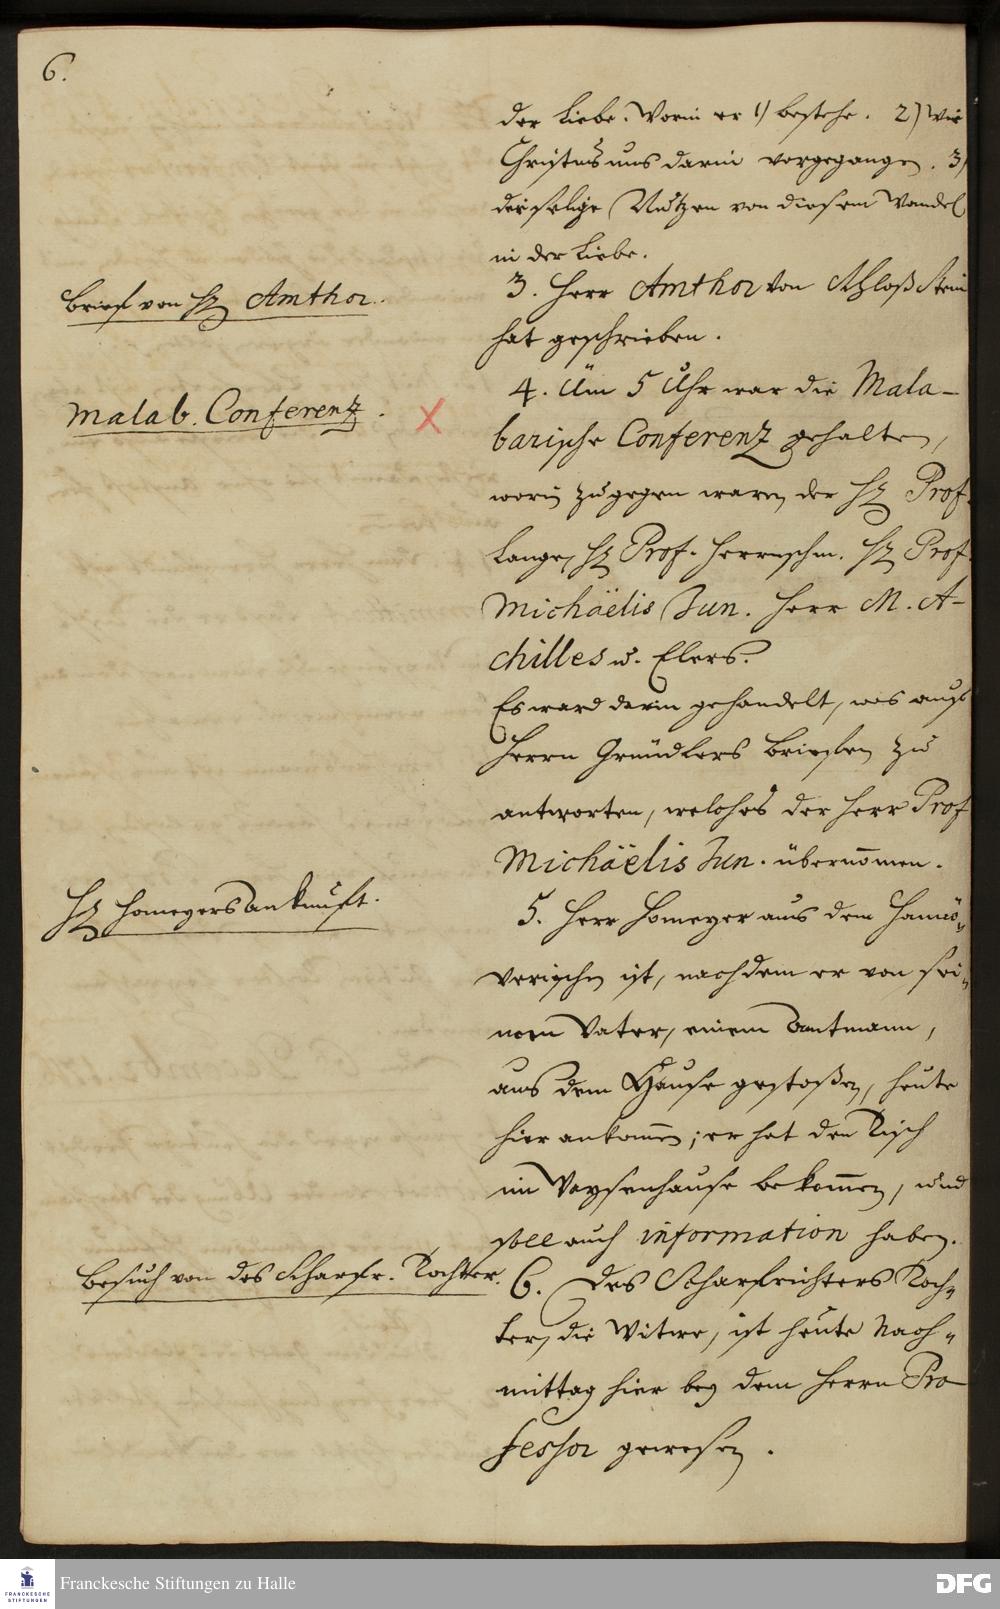 6.
der Liebe. Worin er 1) bestehe. 2) Wie
Christus uns darin vorgegangen. 3)
der selige Nutzen von diesem Wandel
in der Liebe.
Brief von H. Amthor.
3. Herr Amthor von Schloß Stein
hat geschrieben.
Malab. Conferenz.
4. Um 5 Uhr war die Mala-
barische Conferenz gehalten,
worin zugegen waren der H. Prof.
Lange, H. Prof. Herrnschm. H. Prof.
Michäelis Jun. Herr M. A-
chilles u. Elers.
Es ward darin gehandelt, was aufs
Herrn Gründlers Briefen zu
antworten, welches der Herr Prof
Michäelis Jun. übernommen.
H. Homeyers ankunft.
5. Herr Homeyer aus dem Hanno-
verischen ist, nachdem er von sei-
nem Vater, einem Amtmann,
aus dem Hause gestoßen, heute
hier ankommen; er hat den Tisch
im Waysenhause bekommen, und
soll auch information haben.
Besuch von des Scharfr. Tochter.
6. Des Scharfrichters Toch-
ter, die Witwe, ist heute Nach-
mittag hier bey dem Herrn Pro
fessor gewesen.
FRANCKESCHE STIFTUNGEN
Franckesche Stiftungen zu Halle
DFG